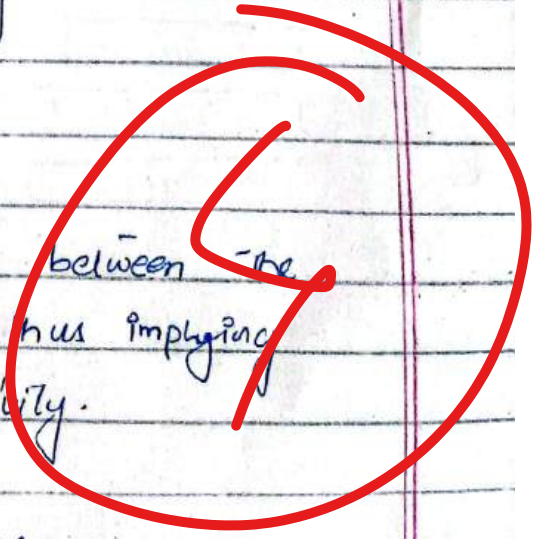 between the
hus implying
ility.
4